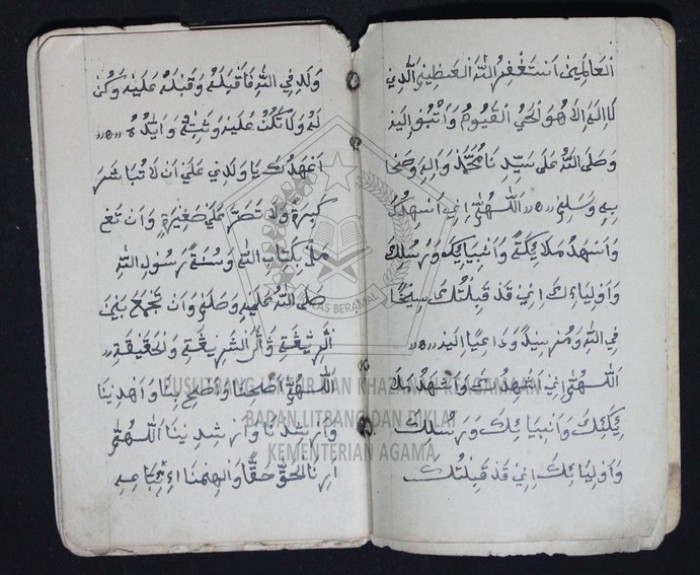 الْعَالَمِيْنَ اَسْتَغْفِرُ اللّٰهَ الْعَظِيْمَ الَّذِيْ
لَا اِلٰهَ اِلَّا هُوَ الْحَيُّ الْقَيُّوْمُ وَاَتُوْبُ اِلَيْهِ
وَصَلَّى اللّٰهُ عَلَى سَيِّدِنَا مُحَمَّدٍ وَاٰلِهِ وَصَحْ
بِهِ وَسَلِّمْ اَللّٰهُمَّ اِنِّيْ اُشْهِدُكَ
وَاُشْهِدُ مَلَائِكَتَكَ وَاَنْبِيَائِكَ وَرُسُلِكَ
وَاَوْلِيَاءِكَ اِنِّيْ قَدْ قَبِلْتُكَ شَيْخًا
فِي اللّٰهِ وَمُرْشِيْدًا وَدَاعِيًا اِلَيْهِ
اَللّٰهُمَّ اِنِّيْ اُشْهِدُكَ وَاُشْهِدُ مَلَا
ئِكَتِكَ وَاَنْبِيَائِكَ وَرُسُلِكَ
وَاَوْلِيَائِكَ اِنِّيْ قَدْ قَبِلْتُكَ
وَلَدِيْ فِي اللّٰهِ فَاَقْبَلَهُ وَقَبْلَهُ عَلَيْهِ وَكُنْ
لَهُ وَلَا تَكُنْ عَلَيْهِ وَثَبِّتْهُ وَاَيِّدْهُ
اَعْهَدُكَ يَا وَلَدِيْ عَلَى اَنْ لَا تُبَاشِرَ
كَبِيْرَةً وَلَا تَصَرَّ عَلَى صَغِيْرَةٍ وَاَنْ تَعْ
مَلَ بِكِتَابِ اللّٰهِ وَسُنَّةِ رَسُوْلِ اللّٰهِ
صَلَّى اللّٰهُ عَلَيْهِ وَسَلَّمَ وَاَنْ تَجْمَعَ بَيْنَ
الشَّرِيْعَةِ وَالْحَقِيْقَةِ
اَللّٰهُمَّ اَصْلِحْنَا وَاَصْلِحْ بِنَا وَاهْدِيْنَا
وَاَرْشِدْنَا وَاَرْشِدْ بِنَا اَللّٰهُمَّ
اَرِنَا الْحَقَّ حَقًّا وَاَلْهِمْنَا
IKHLAS BERAMAL
PUSLITBANG LEKTUR DAN KHAZANAH KEAGAMAAN
BADAN LITBANG DAN DIKLAT
KEMENTERIAN AGAMA